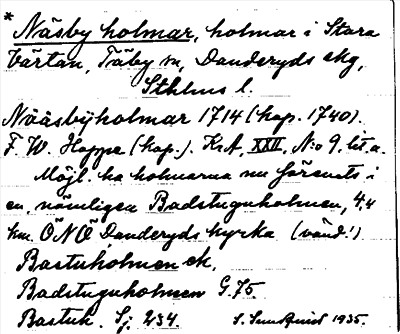 * Näsby holmar, holmar i Stora
Värtan, Täby sn, Danderyds skg,
Sthlms l.
Nääsbÿholmar 1714 (kop. 1740).
F. W. Hoppe (kop.). KrA, XXII, N:o 9. lit. a.
Möjl. ha holmarna nu förenats i
en, nämligen Badstuguholmen, 4,4
km. ÖNÖ Danderyds kyrka (vänd!)
Bastuholmen ek,
Badstuguholmen G. 75.
Bastuk. Sj. 234. 1935.